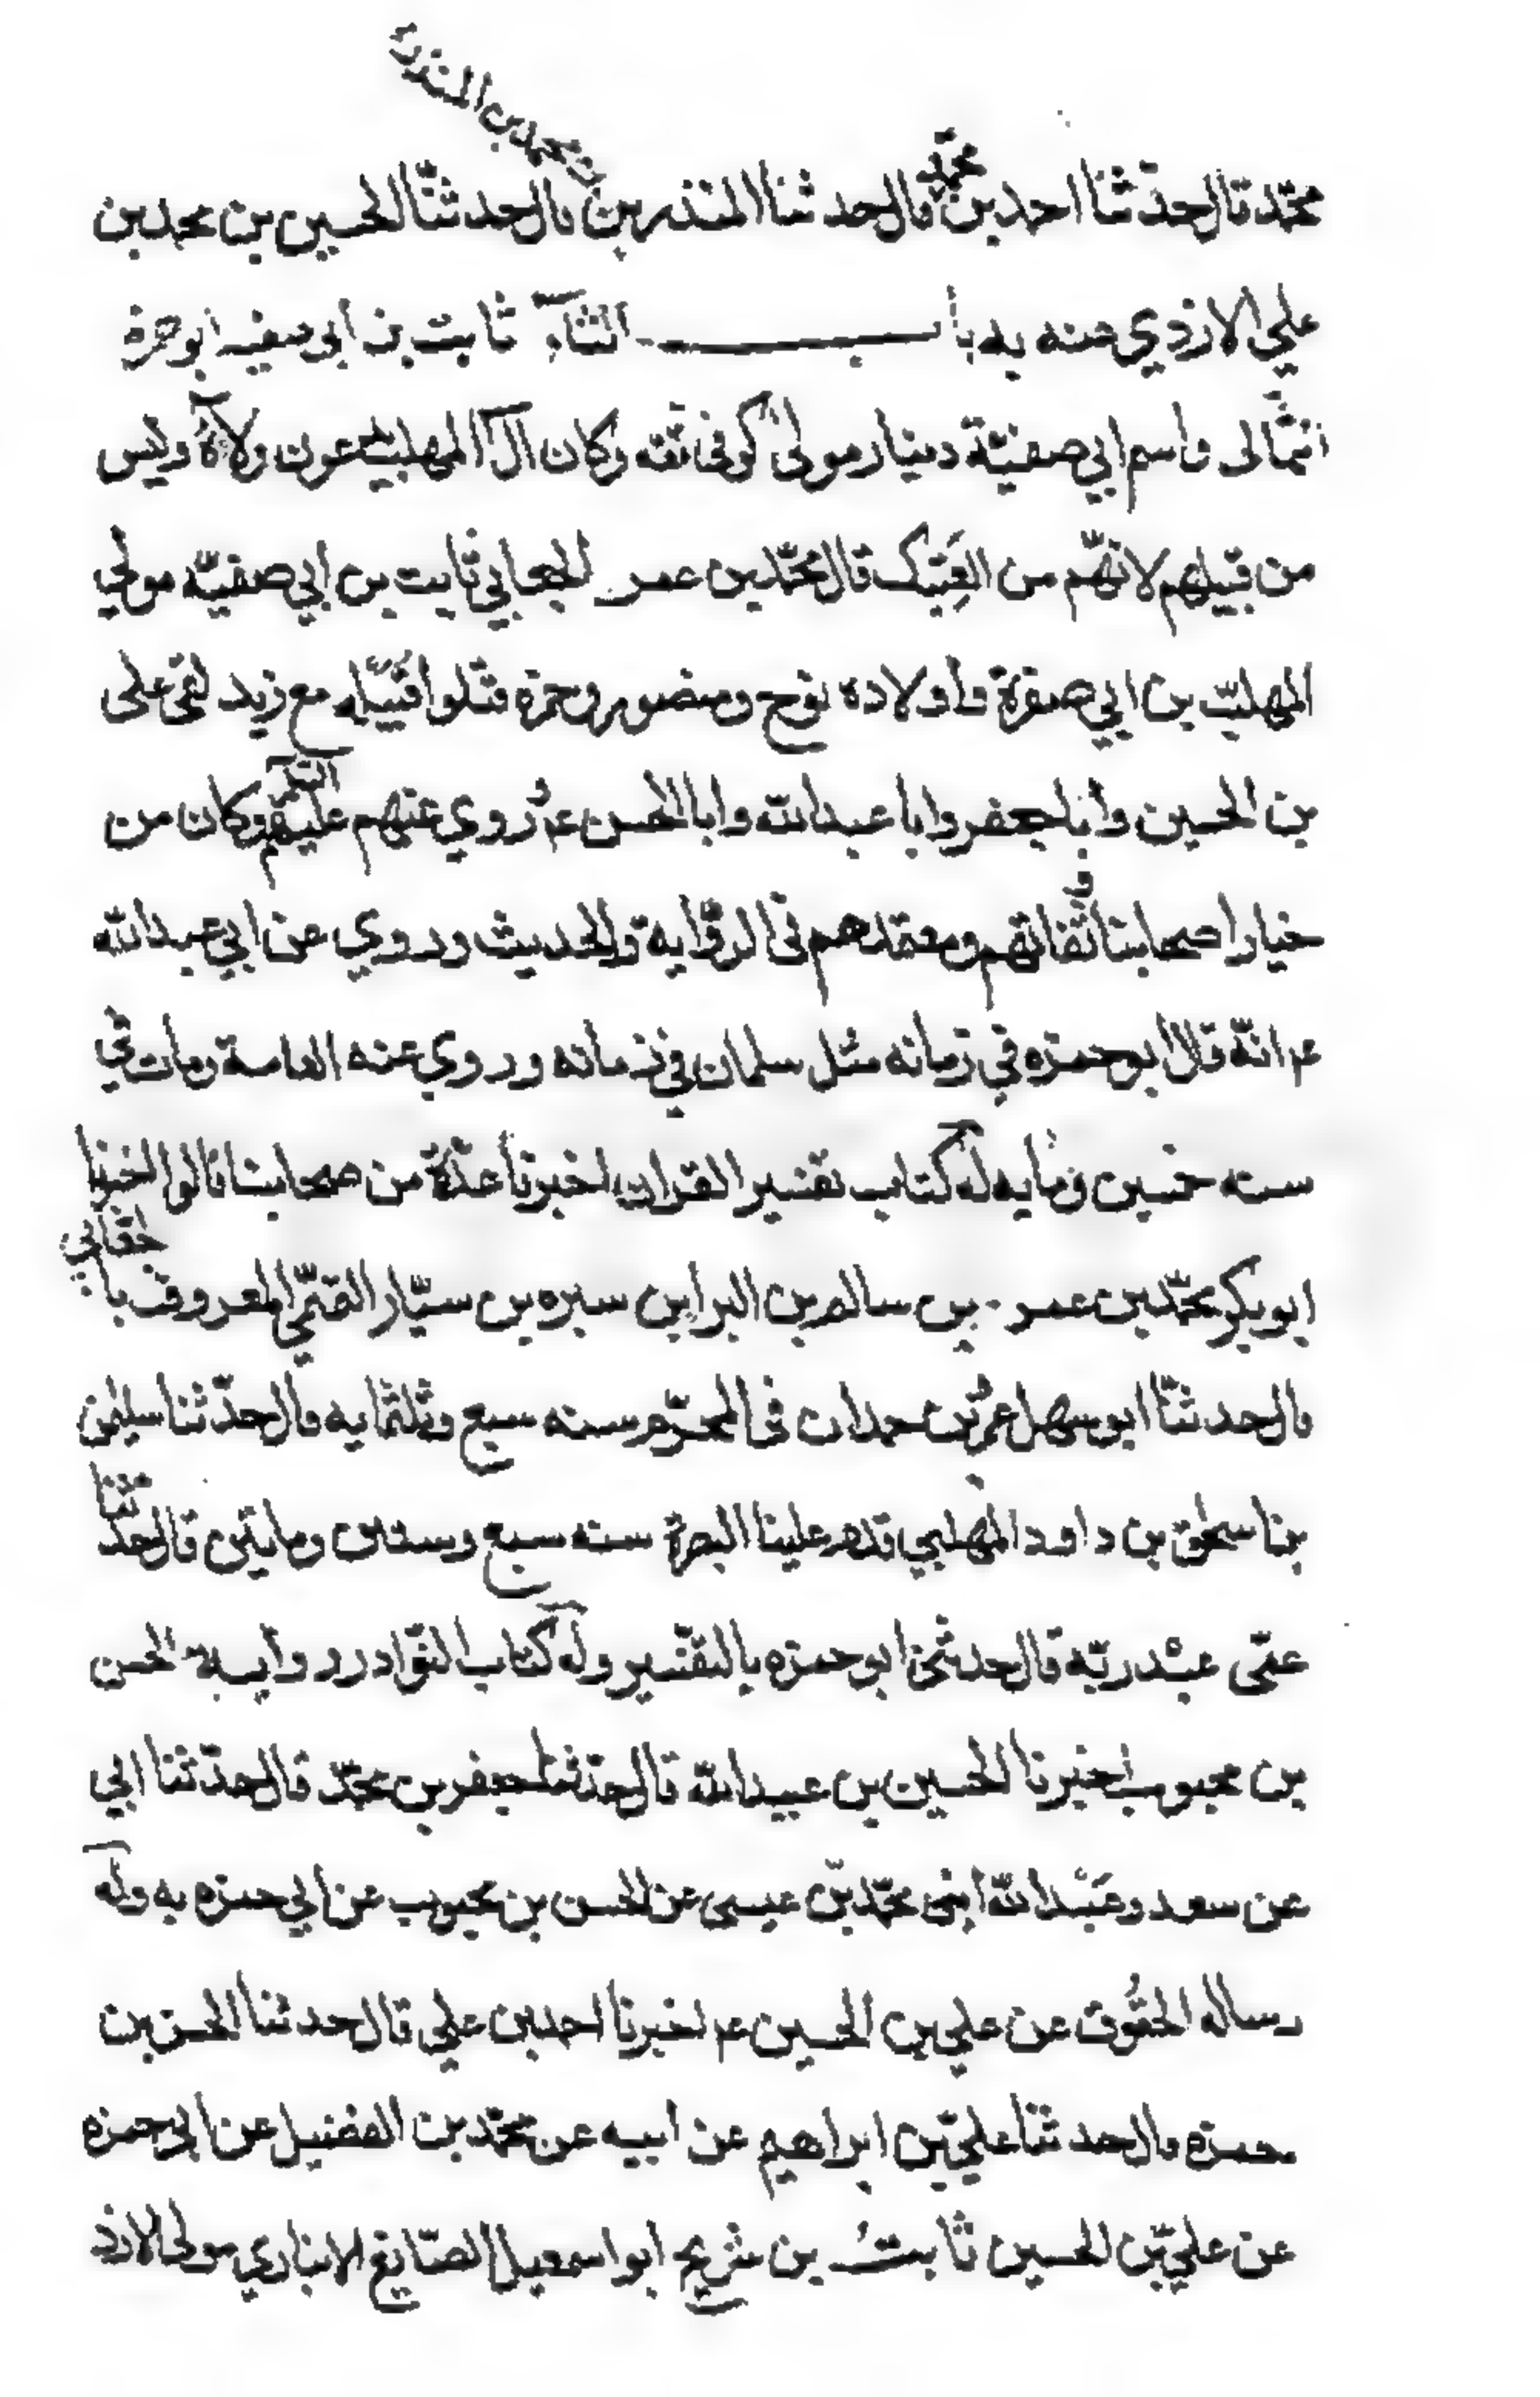 بن محمد بن المنذر
محمّد قال حدّثنا احمد بن محمّد قال حدثنا المنذر بن قال حدثنّا الحسين بن محمد بن
علي الازدي عنه به باب الثاء ثابت بن ابي صفيه ابو حمزة
الثمّالى واسم ابي صفيّة دينار مولى كوفى ثقه وكان آل المهلب يدعون ولاءه وليس
من قبيلهم لانهّم من العَتِيك قال محمّد بن عمر الجعابي ثابت بن ابي صفيّه مولي
المهلبّ بن ابي صفرة وأولاده نوح ومنصور وحمزه قتلوا مع زيد لقى على
بن الحسين وأبا جعفر وابا عبدالله وابا الحسن ع روي عنهم عليهم السّلم وكان من
خيار اصحابنا و ثقاتهم ومعتمدهم فى الرّوايه والحديث وروي عن ابي عبدالله
ع انّه قال ابو حمزه في زمانه مثل سلمان في زمانه وروي عنه العامة ومات في
سنه خمسين ومايه له كتاب تفسير القران اخبرنا عدّة من اصحابنا قالوا اخبرنا
ابو بكر محمّد بن عمر بن سالم بن البرا بن سبره بن سيّار القمّي المعروف بابن جعابي
قال حدثنّا ابو سهل عمرُ بن حمدان فى المحرّم سنه سبع وثلثمايه قال حدّثنا سليمن
بن اسحق بن داود المهلبي قدم علينا البصرة سنه سبع وستين ومايتين قال حدّثنا
عمّى عبْد ربّه قال حدثنى ابو حمزه بالتفّسير وله كتاب النّوادر روايه الحسن
بن محبوب اخبرنا الحسين بن عبيدالله قال حدّثنا جعفر بن محمّد قال حدّثنا ابي
عن سعد وعَبْدالله ابنى محمّد بّن عيسى عن الحسن بن محبوب عن ابي حمزه به وله
رساله الحقُوق عن علي بن الحسين ع اخبرنا احمد بن علي قال حدثنا الحسن بن
حمزه قال حدثنا علي بّن ابراهيم عن ابيه عن محمّد بن الفضيل عن ابي حمزه
عن علي بّن الحسين ثابتُ بن شريح ابو اسمعيل الصّايغ الانباري مولى الازد